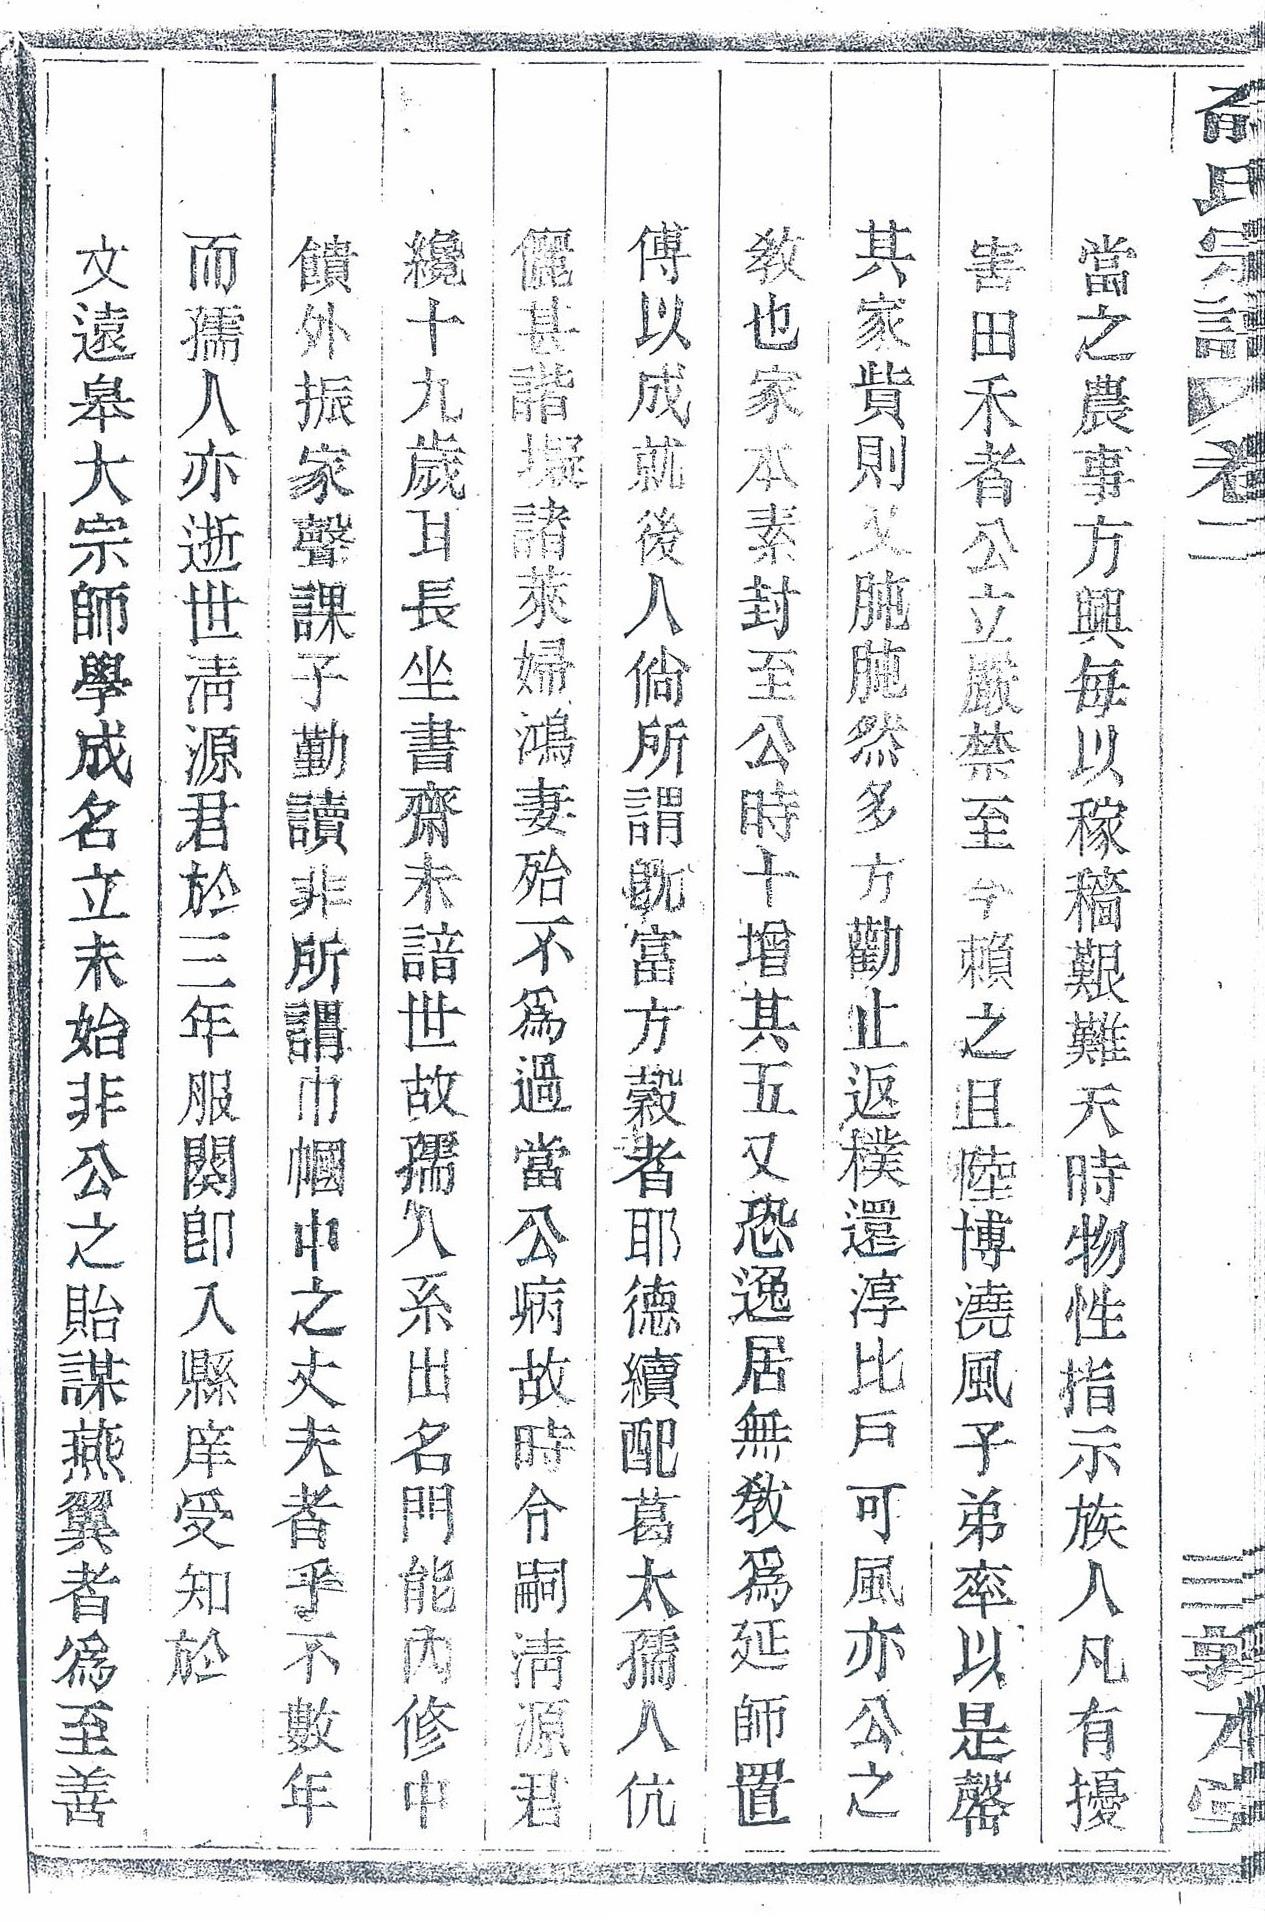 氏宗譜 卷二
當之農事方興每以稼穡艱難天時物性指示族人凡有擾
害田禾者公立嚴禁至今賴之且陸博澆風子弟率以是罄
其家貲則又肫肫然多方勸止返樸還淳比戶可風亦公之
教也家本素封至公時十增其五又恐逸居無教為延師置
傅以成就後人倘所謂既富方穀者耶德續配葛太孺人伉
儷甚諧擬諸萊婦鴻妻殆不為過當公病故時令嗣清源君
纔十九歲耳長坐書齋未諳世故孺人系出名門能內修中
饋外振家聲課子勤讀非所謂巾幗中之丈夫者乎不數年
而孺人亦逝世清源君於三年服闋即入縣庠受知於
文遠皋大宗師學成名立未始非公之貽謀燕翼者為至善